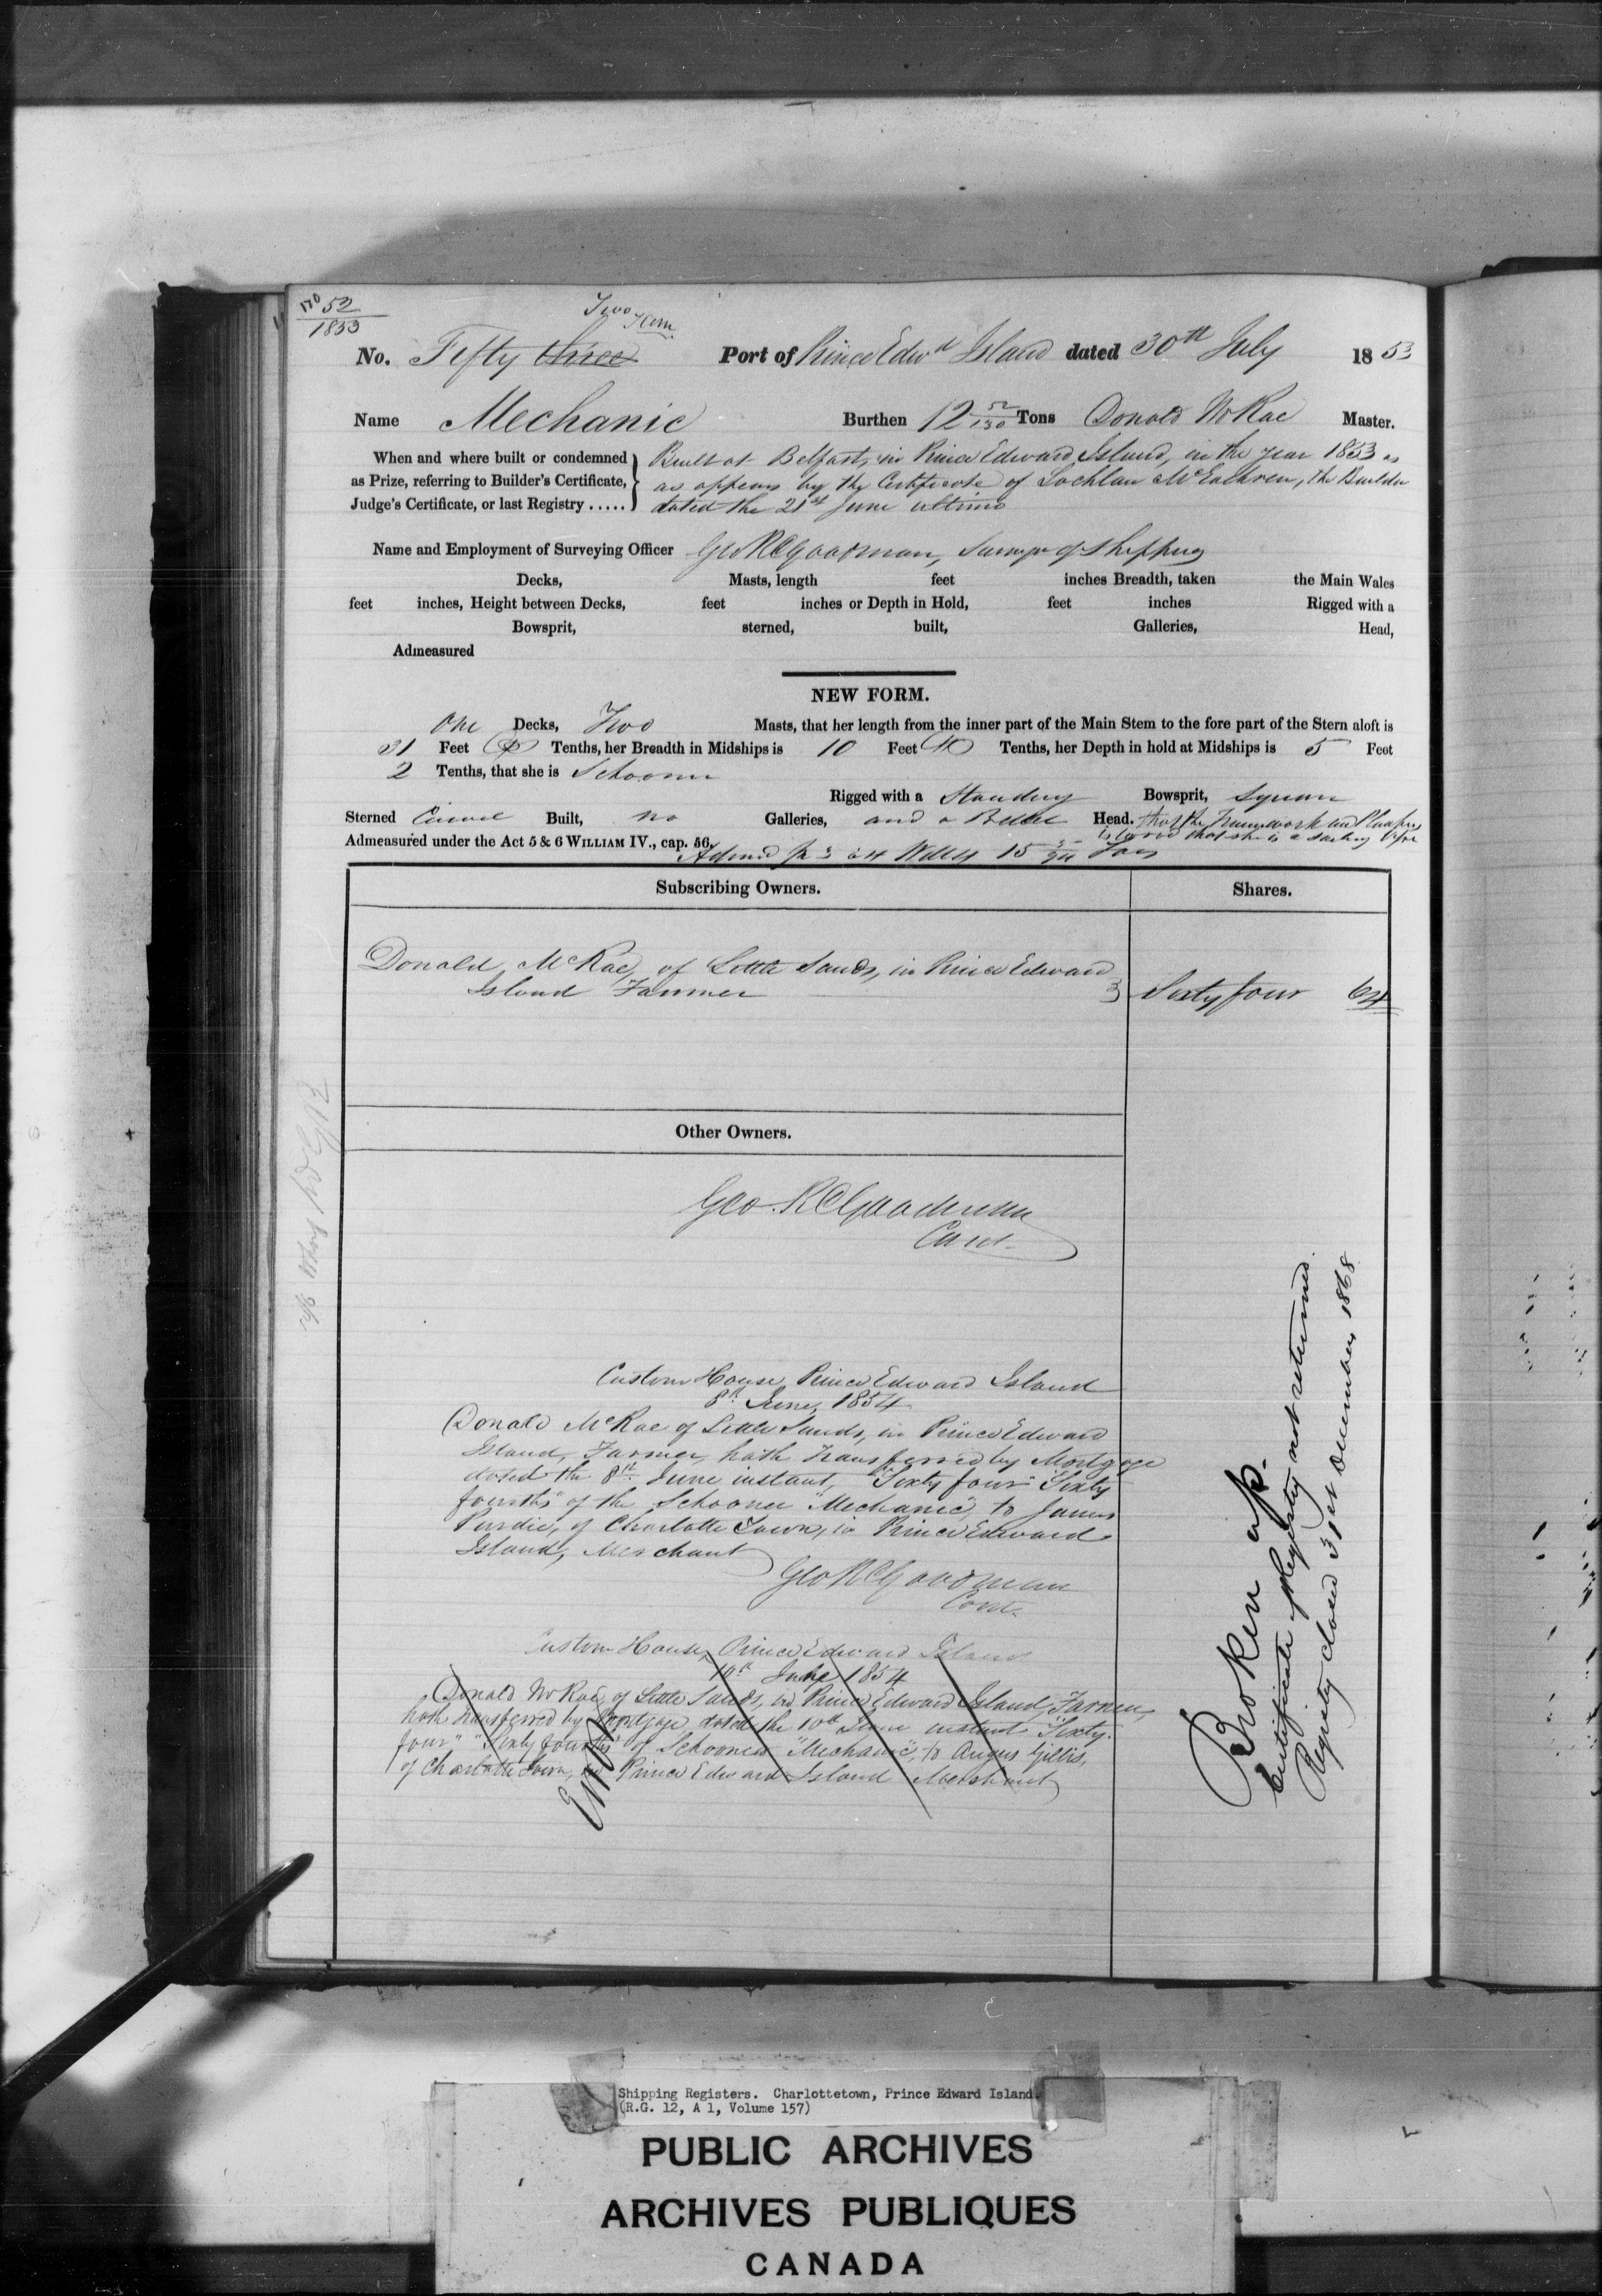 No 52
1853
Two
No. Fifty three Port of Prince Edwd Island dated 30th July 1853
Name Mechanic Burthen 12 52/130 Tons Donald McRae Master.
When and where built or condemned Built at Belfast, in Prince Edward Island, in the year 1853 as
as Prize, referring to Builder's Certificate, as appears by the Certificate of Lochlan McEachren, the Builder
Judge's Certificate, or last Registry ..... dated the 21st June ultimo
Name and Employment of Surveying Officer Geo R C Goodman, Surveyor of Shipping
Decks, Masts, length feet inches Breadth, taken the Main Wales
feet inches, Height between Decks, feet inches or Depth in Hold, feet inches Rigged with a
Bowsprit, sterned, built, Galleries, Head,
Admeasured
NEW FORM.
One Decks, Two Masts, that her length from the inner part of the Main Stem to the fore part of the Stern aloft is
31 Feet Tenths, her Breadth in Midships is 10 Feet Tenths, her Depth in hold at Midships is 5 Feet
2 Tenths, that she is Schooner
Rigged with a Standing Bowsprit, Square
Sterned Carvel Built, no Galleries, and a Billet Head. that the Framework and Planking
is wood that she is a sailing
Admeasured under the Act 5 & 6 WILLIAM IV., cap. 56. Tons
Subscribing Owners. Shares.
Donald McRae, of Little Sands, in Prince Edward
Island Farmer Sixty four 64
Other Owners.
Geo. R C Goodman
Cont.
Custom House, Prince Edward Island
8th June, 1854
Donald McRae of Little Sands, in Prince Edward
Island, Farmer, hath transferred by Mortgage
dated the 8th June instant, "Sixty four" Sixty
fourths" of the Schooner "Mechanic", to James
Purdie, of Charlotte Town, in Prince Edward
Island, Merchant
Geo R C Goodman
Cont.
Custom House, Prince Edward Island
10th June 1854
Donald McRae, of Little Sands, in Prince Edward Island, Farmer,
hath transferred by Mortgage, dated the 10th June instant "Sixty
four" "Sixty fourths" of Schooner "Mechanic", to Angus Gillis,
of Charlotte Town, in Prince Edward Island Merchant
Error
Broken up.
Certificate of Registry not returned.
Registry closed 31st December 1868
Shipping Registers. Charlottetown, Prince Edward Island.
(R.G. 12, A 1, Volume 157)
PUBLIC ARCHIVES
ARCHIVES PUBLIQUES
CANADA